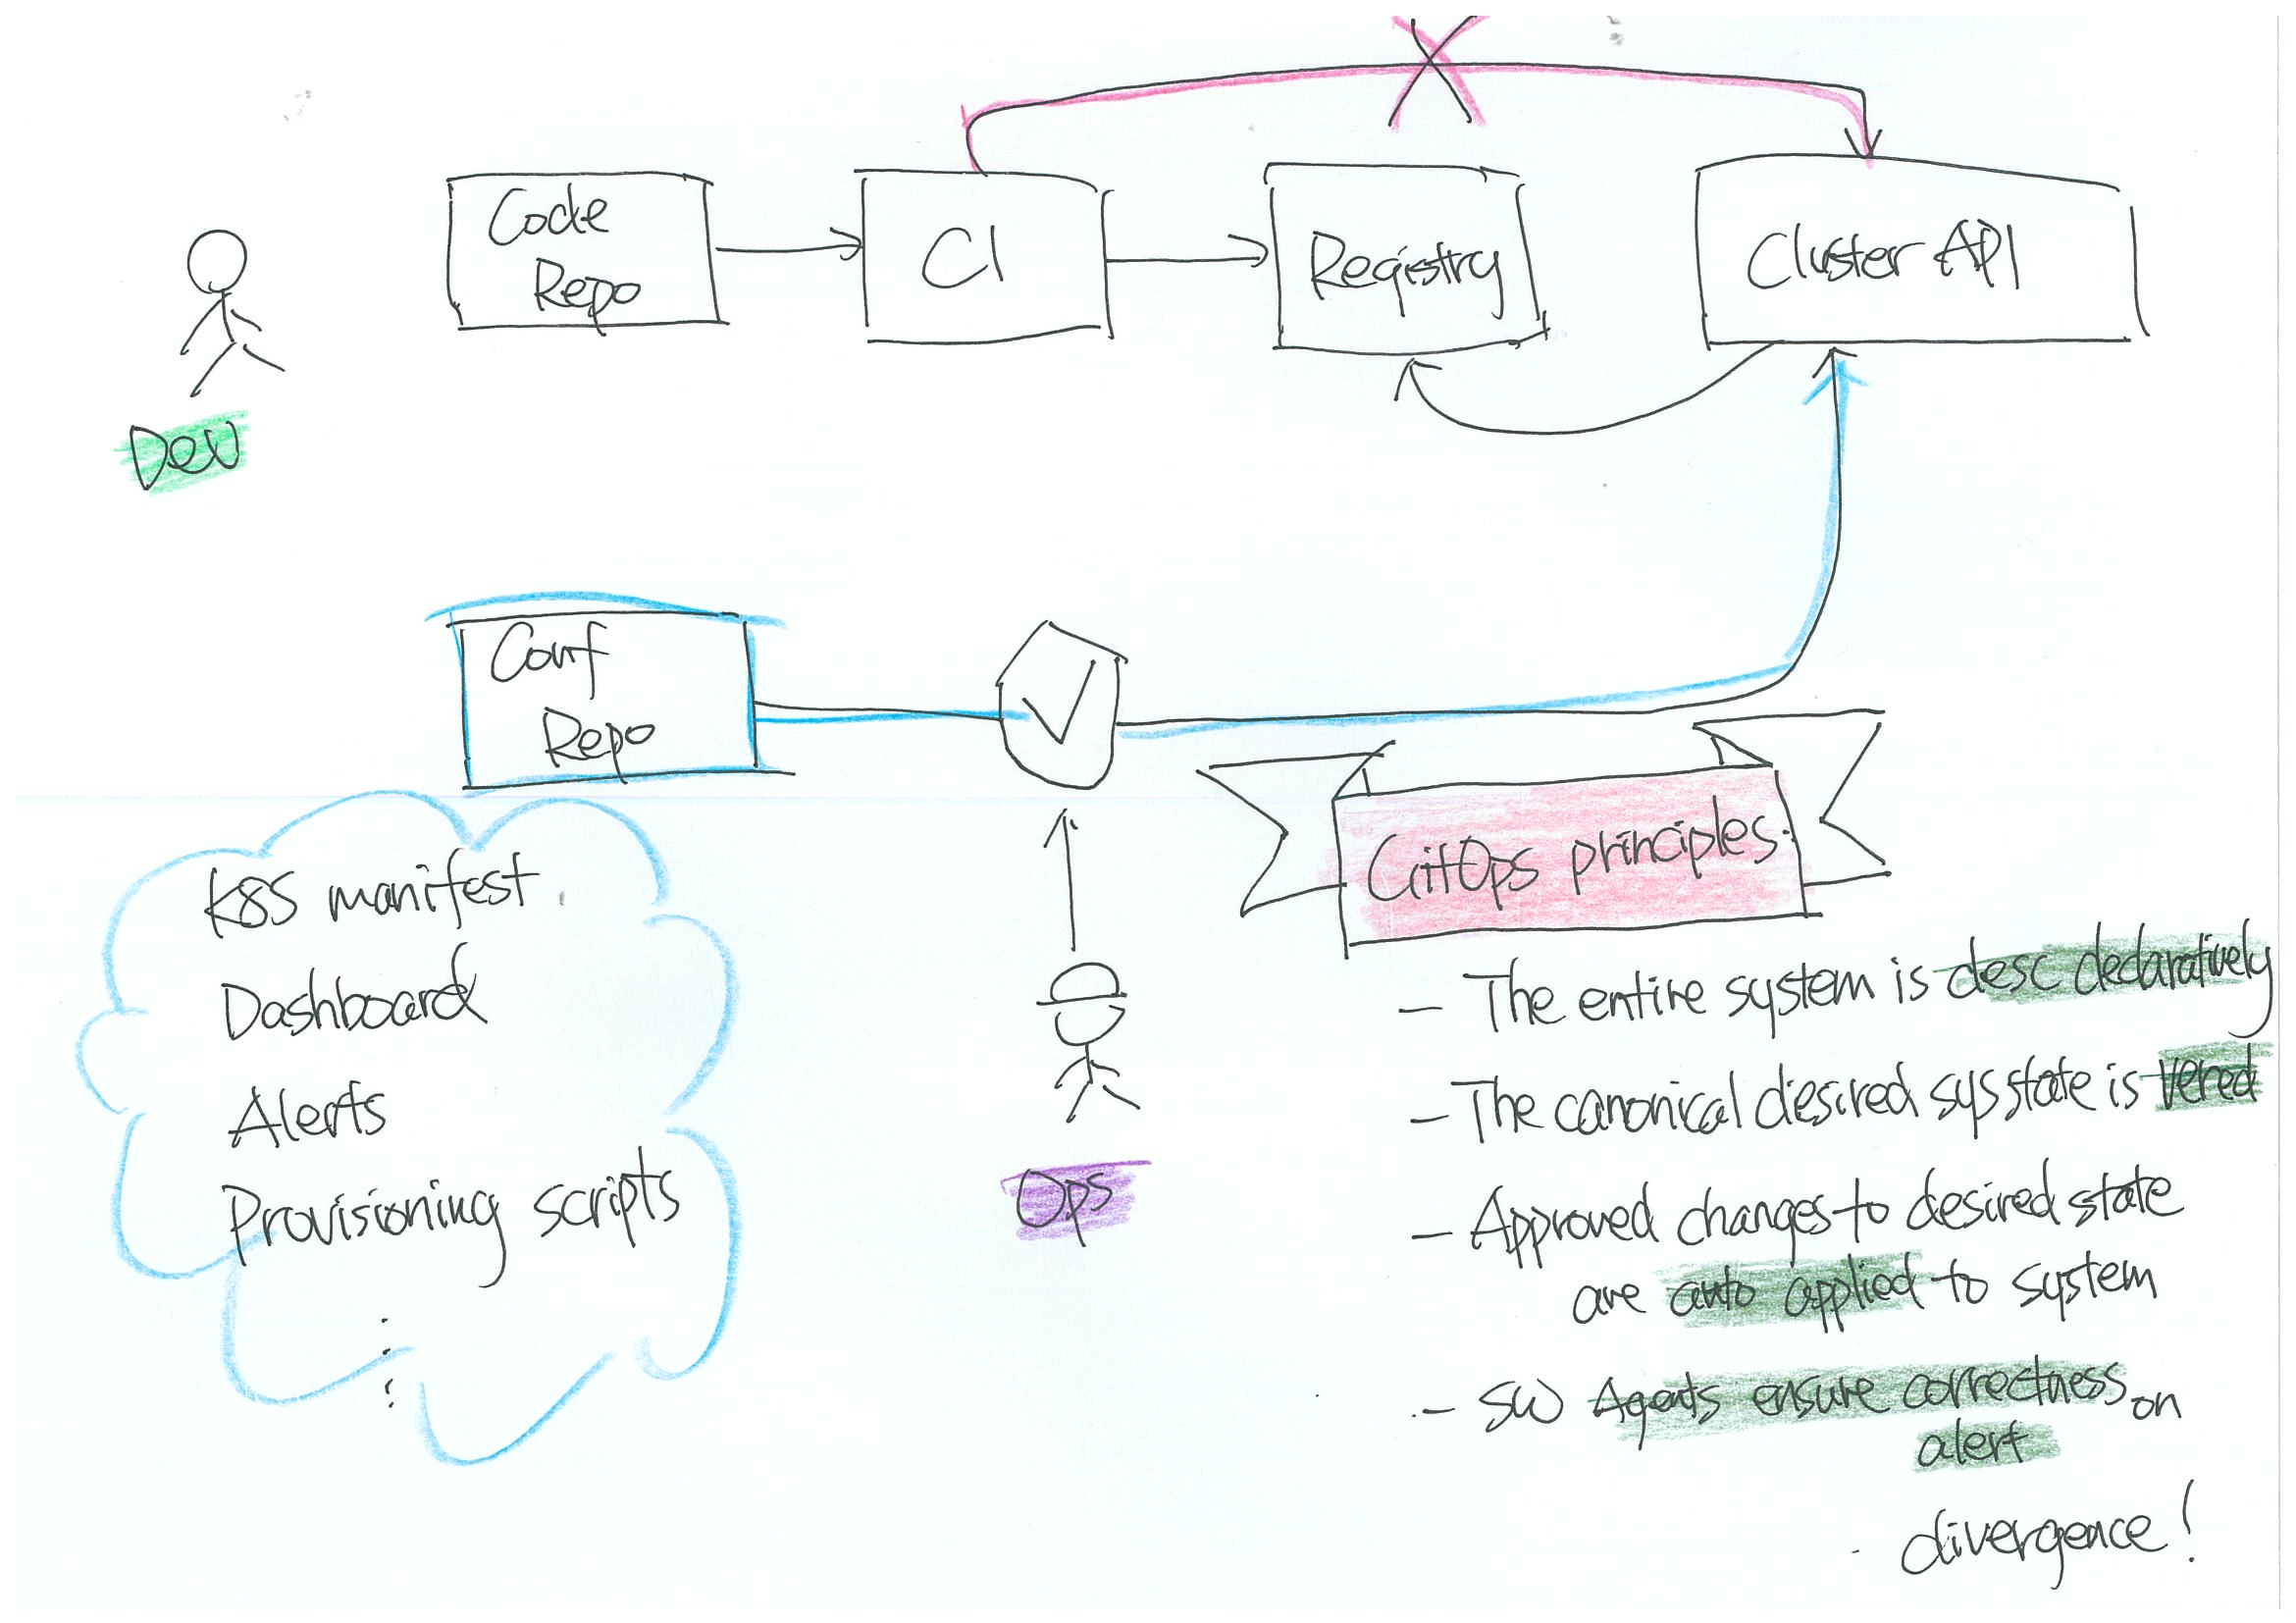 Code
Repo
CI
Registry
Cluster API
Dev
Conf
Repo
GitOps principles
K8S manifest
Dashboard
Alerts
Provisioning scripts
Ops
- The entire system is desc declaratively
- The canonical desired sys state is vered
- Approved changes to desired state
are auto applied to system
- SW Agents ensure correctness on
alert
divergence!